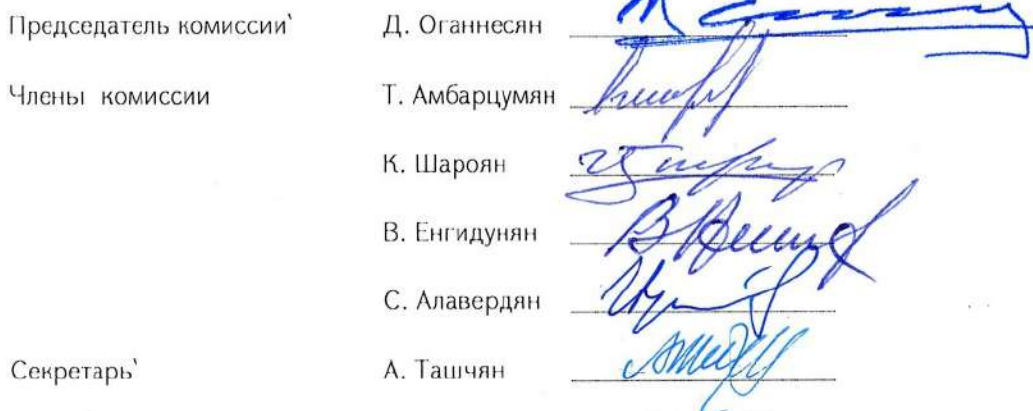 Председатель комиссии՝ Д. Оганнесян
Члены комиссии Т. Амбарцумян
К. Шароян
В. Енгидунян
С. Алавердян
Секретарь՝ А. Ташчян